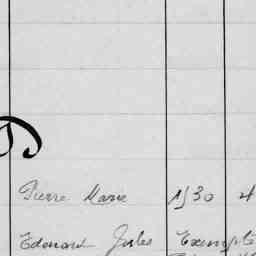 Pierre Marie 1530 4
Edouard Jules Exempté